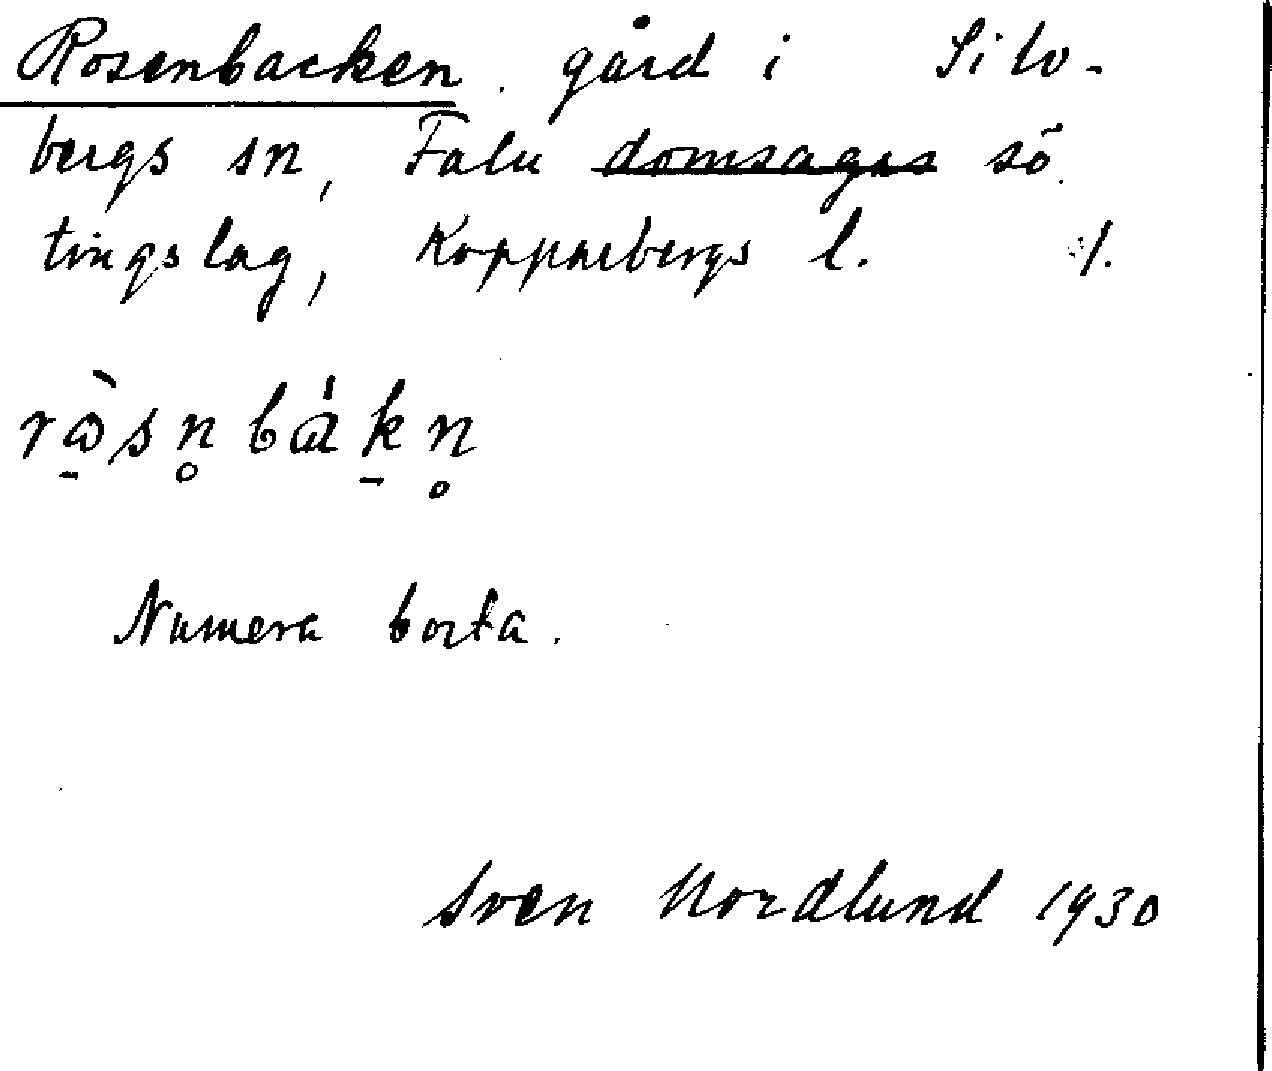 Rosenbacken gård i Silv-
bergs sn, Falu domsagas sö
tingslag, Kopparbergs l. ./.
rὼ̱sn̥báḵn̥
Numera borta.
Sven Nordlund 1930